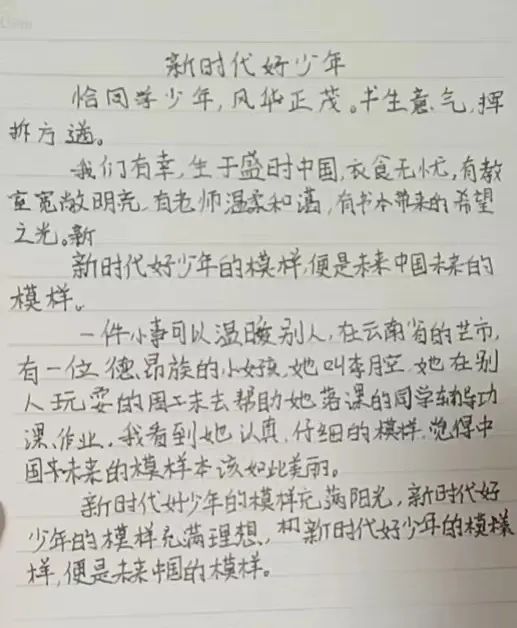 新时代好少年
恰同学少年，风华正茂。书生意气，挥
拆方遒。
我们有幸，生于盛时中国，衣食无忧，有教
室宽敞明亮，有老师温柔和蔼，有书本带来的希望
之光。新
新时代好少年的模样，便是未来中国未来的
模样。
一件小事可以温暖别人，在云南省的芒市，
有一位德昂族的小女孩，她叫李月，她在别
人玩耍的周工末去帮助她落课的同学辅导功
课、作业。我看到她认真、仔细的模样，觉得中
国未来的模样本该如此美丽。
新时代好少年的模样充满阳光，新时代好
少年的模样充满理想，新时代好少年的模样
样，便是未来中国的模样。